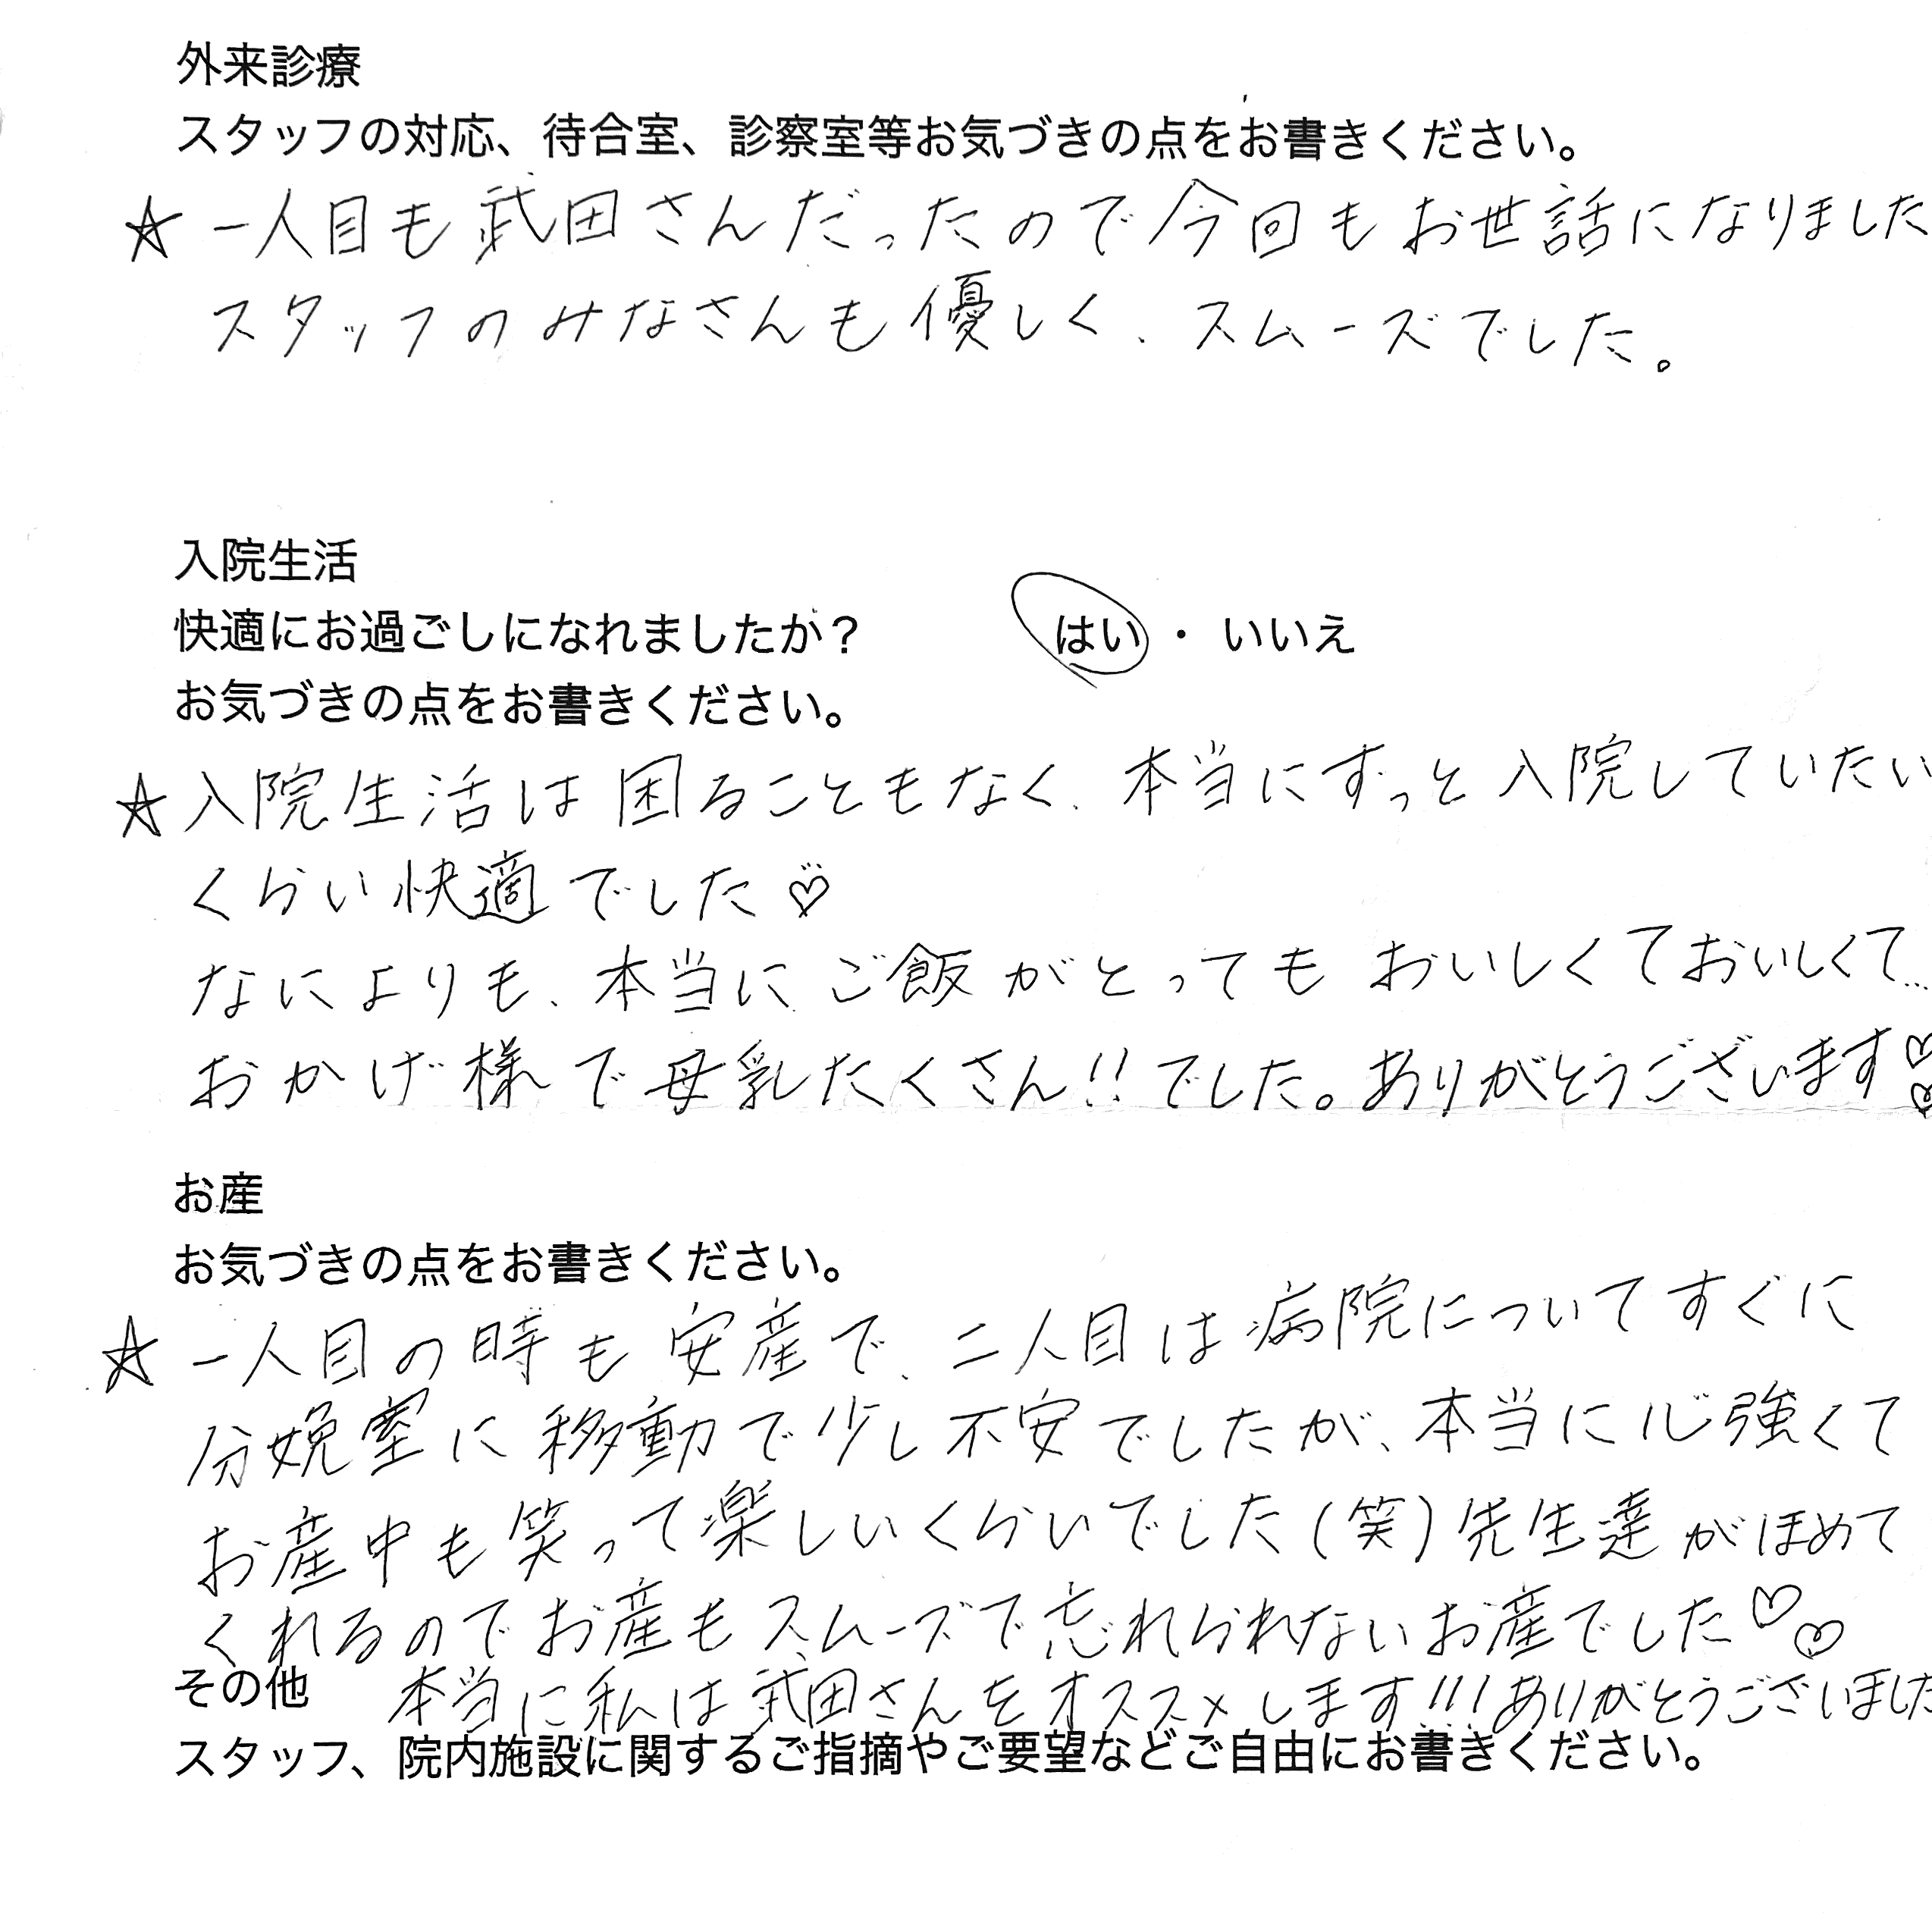 外来診療
スタッフの対応、待合室、診察室等お気づきの点をお書きください。
☆ 一人目も武田さんだったので今回もお世話になりました
スタッフのみなさんも優しく、スムーズでした。
入院生活
快適にお過ごしになれましたか？ はい ・ いいえ
お気づきの点をお書きください。
☆ 入院生活は困ることもなく、本当にずっと入院していたい
くらい快適でした♡
なによりも、本当にご飯がとってもおいしくておいしくて…
おかげ様で母乳たくさん!!でした。ありがとうございます♡♡
お産
お気づきの点をお書きください。
☆ 一人目の時も安産で、二人目は病院についてすぐに
分娩室に移動で少し不安でしたが、本当に心強くて
お産中も笑って楽しいくらいでした(笑)先生達がほめて
くれるのでお産もスムーズで忘れられないお産でした♡♡
その他 本当に私は武田さんをオススメします!!!ありがとうございました
スタッフ、院内施設に関するご指摘やご要望などご自由にお書きください。